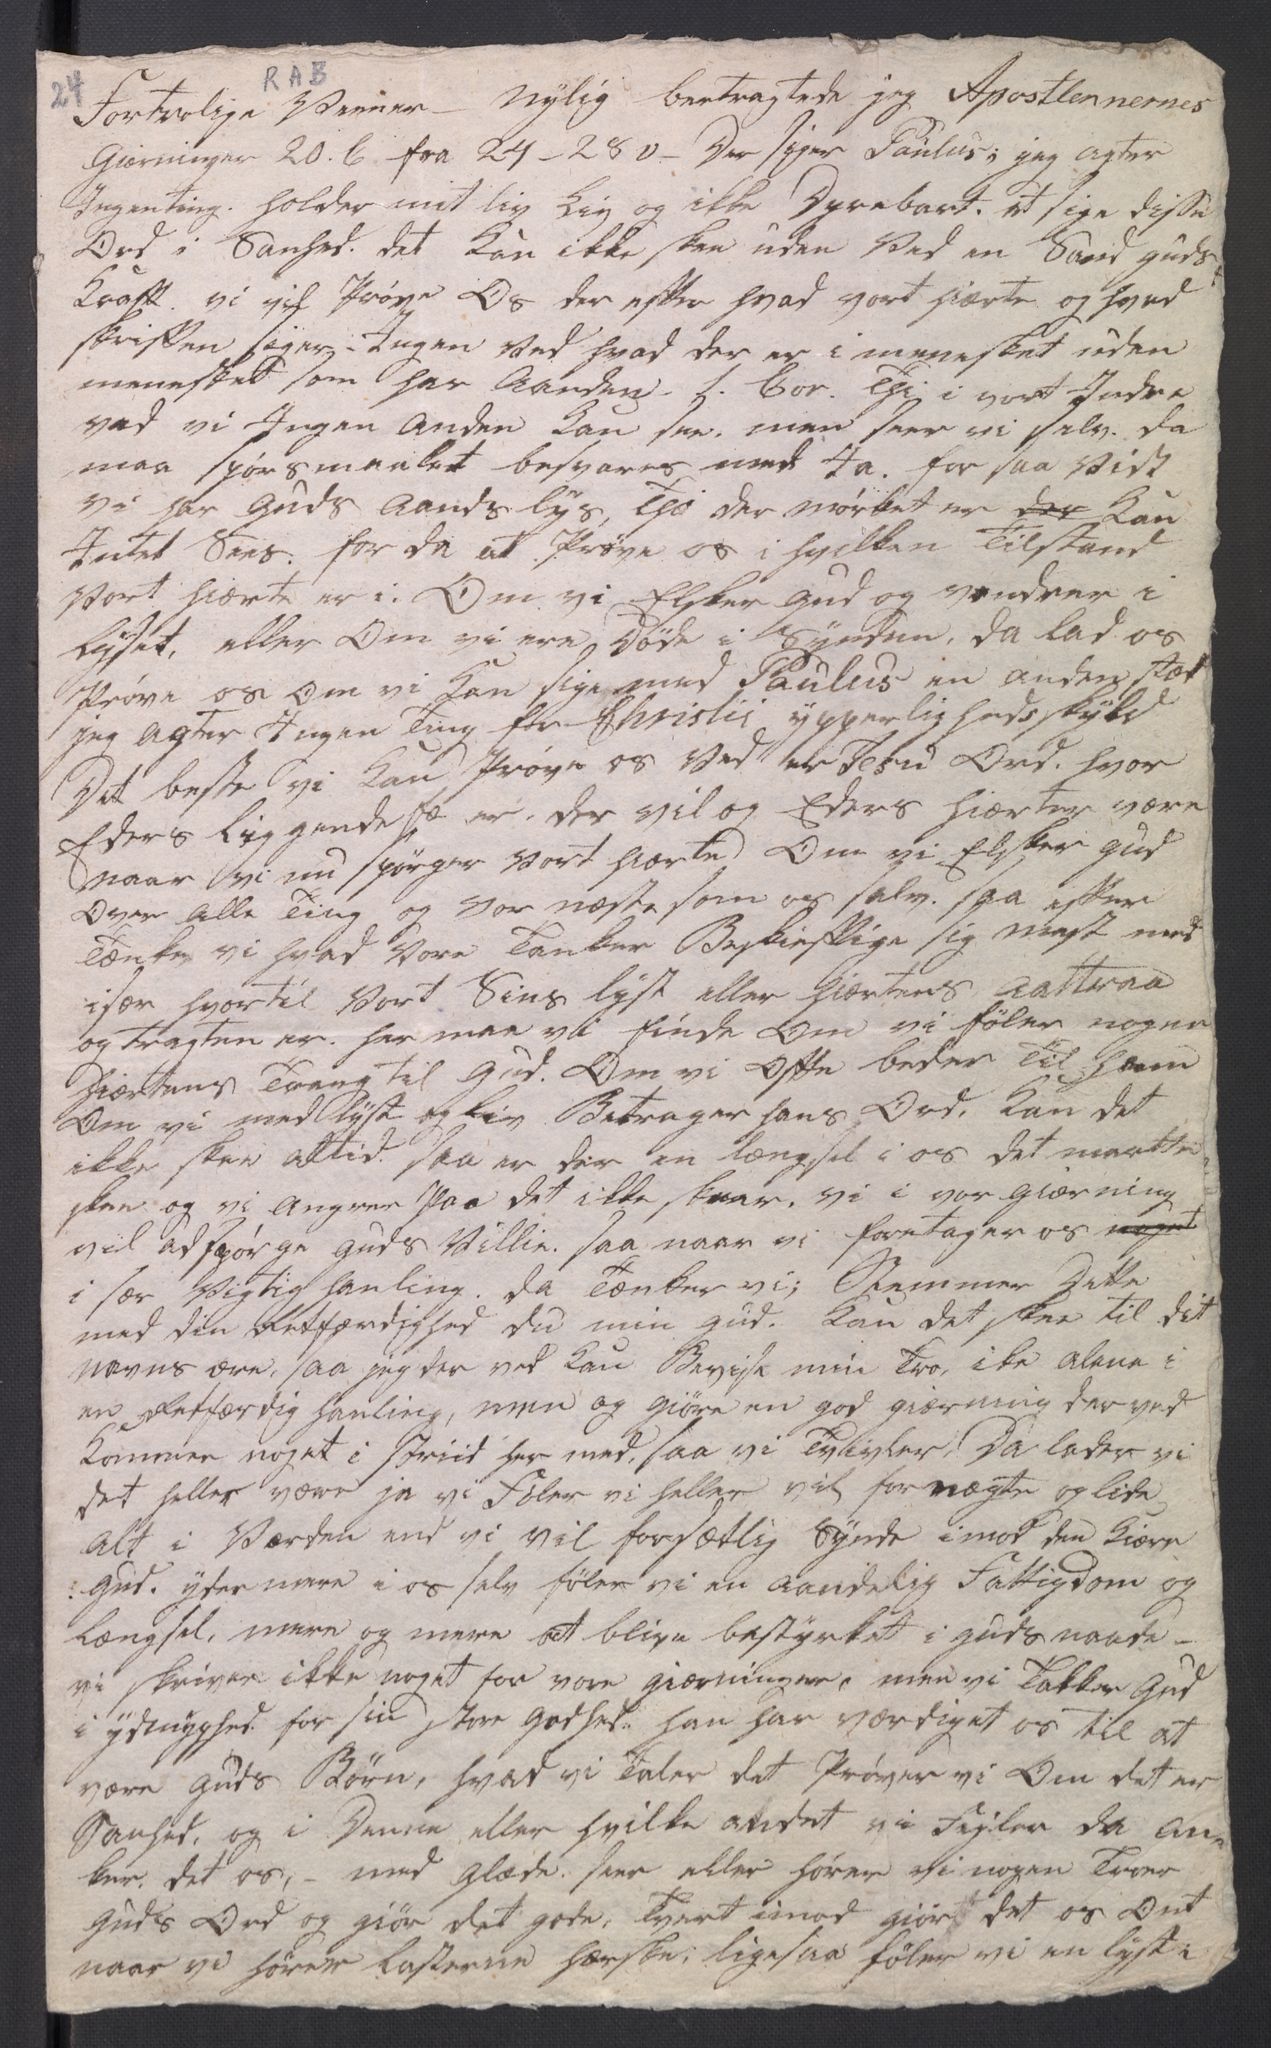 24
R A B
Fortrolige Venner – Nylig bertragtede jeg Apostlennernes
Giærninger 20. C fra 24–28 v – Der siger Paulus; jeg agter
Ingenting. holder mit liv Liv og ikke Dyrebart. at sige disse
Ord i Sanhed. det kan ikke skee uden Ved en Sand guds
Kraft. vi vil Prøve Os der efter hvad vort hierte og hvad
skriften siger – Ingen Ved hvad der er i menesket uden
menesket som har Aanden – 1. Cor. Thi i vort Indre
ved vi Ingen Anden kan see. men seer vi selv. da
maa spørsmaalet besvares med Ja. for saa Vidt
vi har Guds Aands lys, Thi der mørket er der kan
Intet Sees. for da at Prøve os i hvilken Tilstand
Vort hierte er i. Om vi Elsker Gud og vandrer i
lyset, eller Om vi ere Døde i Synden, da lad os
Prøve os Om vi kan sige med Paulus en anden stæd
jeg Agter Ingen Ting for Christii ypperligheds skyld
Det beste vi kan Prøve os Ved er Jesu Ord. hvor
Eders Liggendefæ er, der vil og Eders hierter være
Naar vi nu spørger Vort hierte Om vi Elsker gud
Over Alle Ting og Vor næste som os selv. saa efter
Tænke vi hvad Vore Tanker Beskieftige sig mest med
især hvortil Vort Sins lyst eller hiertens aattraa
og tragten er. her maa vi finde Om vi føler nogen
hiertens Trang til Gud. Om vi Ofte beder Til ham
Om vi med lyst og Liv Betrager hans Ord, kan det
ikke skee altid. saa er der en længsel i os det maatte
skee og vi Angrer paa det ikke skeer. vi i vor Giærning
vil adspørge Guds Villie. saa naar vi foretager os noget
i sær Vigtig hanling. da Tænker vi; Stemmer Dette
med din Retfærdighed du min Gud. kan det skee til dit
Navns ære, saa jeg der ved kan Bevise min Tro, ike alene i
en Retfærdig hanling, men og giøre en god giærning der ved
kommer noget i striid her med, saa vi Tvivler. Da lader vi
det heller være ja vi Føler vi heller vil fornægte og lide
Alt i Verden end vi vil forsætlig Synde imod den kiære
Gud. yder mere i os selv føler vi en aandelig Fattigdom og
længsel, mere og mere at blive bestyrket i guds naade –
vi skriver ikke noget for vore giærninger, men vi Takker Gud
i ydmyghed for sin store Godhed. han har værdiget os til at
være Guds Børn, hvad vi Taler det Prøver vi Om det er
Sanhed, og i Denne eller hvilke andet vi Fejler da an
ker det os, – med Glæde seer eller hører vi nogen Troer
Guds Ord og giør det gode, Tvert imod giør det os Ont
naar vi hører Lasterne hærske; ligesaa føler vi en lyst i